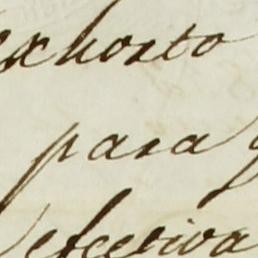 exhorto
para
efectiva